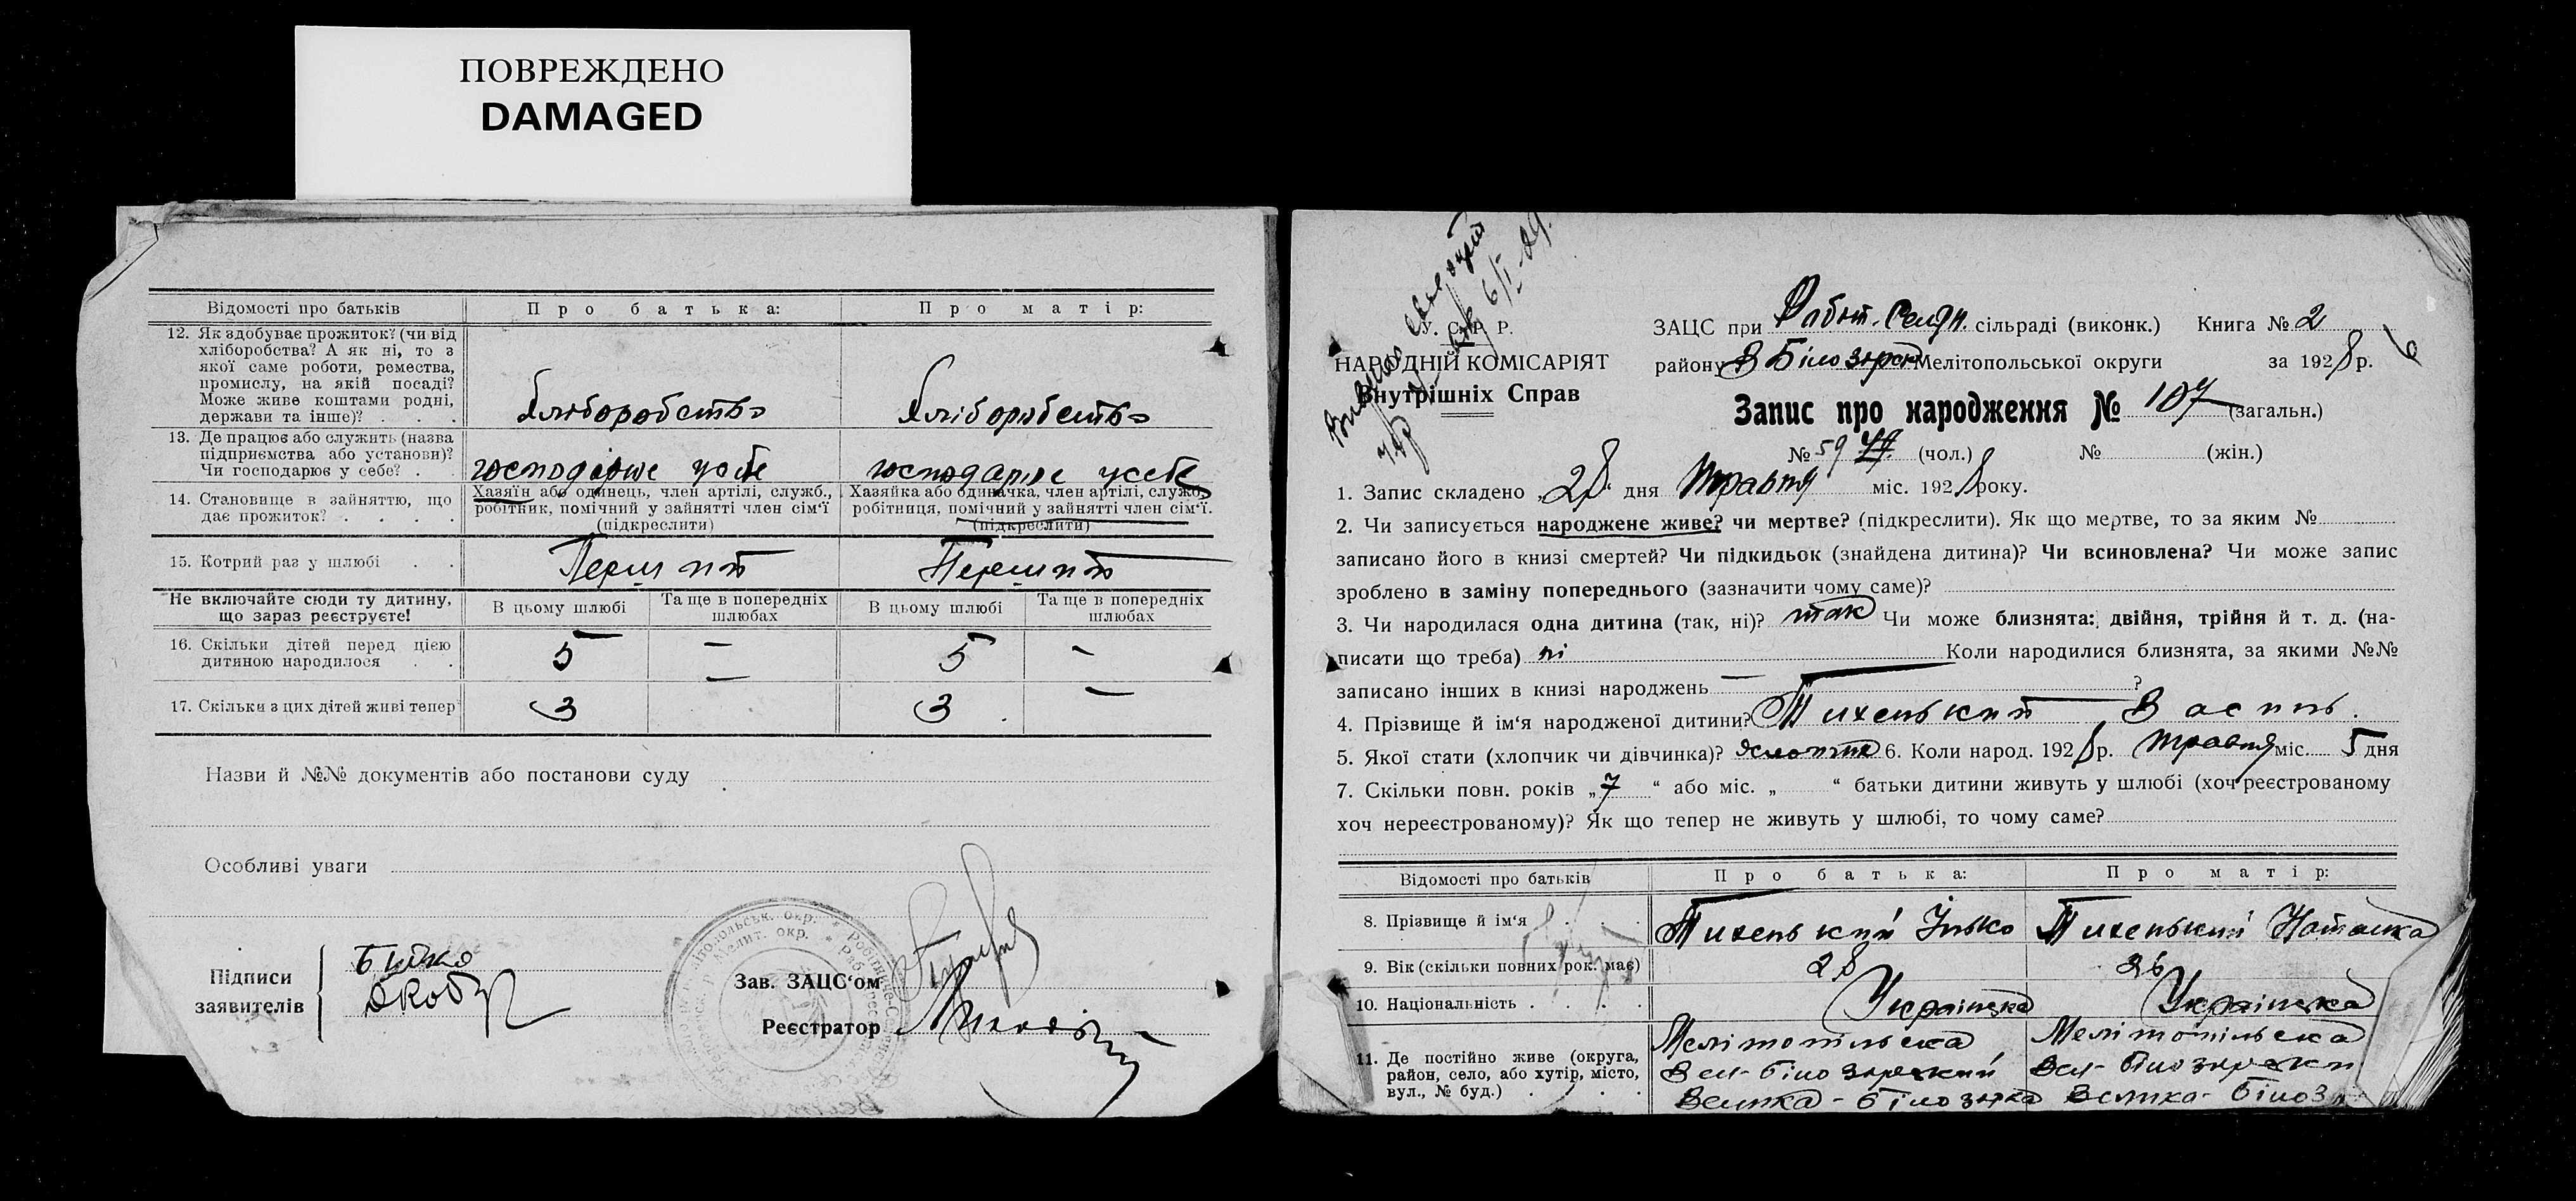 ПОВРЕЖДЕНО
DAMAGED
Відомості про батьків
Про батька:
Про матір:
12. Як здобуває прожиток? (чи від
хліборобства? А як ні, то з
якої саме роботи, ремества,
промислу, на якій посаді?
Може живе коштами родні,
держави та інше)? . . .
Хліборобство
Хліборобство
13. Де працює або служить (назва
підприємства або установи)?
Чи господарює у себе? .
господарює у себе
господарює у себе
14. Становище в зайняттю, що
дає прожиток? . . . .
Хазяїн або одинець, член артілі, служб.,
робітник, помічний у зайнятті член сім'ї
(підкреслити)
Хазяйка або одиначка, член артілі, служб.,
робітниця, помічний у зайнятті член сім'ї.
(підкреслити)
15. Котрий раз у шлюбі . .
Перший
Перший
Не включайте сюди ту дитину,
що зараз реєструєте!
В цьому шлюбі
Та ще в попередніх
шлюбах
В цьому шлюбі
Та ще в попередніх
шлюбах
16. Скільки дітей перед цією
дитиною народилося . .
5 — 5 —
17. Скільки з цих дітей живі тепер
3 — 3 —
Назви й №№ документів або постанови суду
Особливі уваги
Підписи
заявителів
Зав. ЗАЦС'ом
Реєстратор
У. С. Р. Р.
НАРОДНІЙ КОМІСАРІЯТ
Внутрішніх Справ
6/I-29.
ЗАЦС при Работ. Селян. сільраді (виконк.) Книга № 2
району В Білозірськ Мелітопольської округи за 1928 р.
6
Запис про народження № 107 (загальн.)
№ 59 (чол.) № (жін.)
1. Запис складено „28" дня Травня міс. 1928 року.
2. Чи записується народжене живе? чи мертве? (підкреслити). Як що мертве, то за яким №
записано його в книзі смертей? Чи підкидьок (знайдена дитина)? Чи всиновлена? Чи може запис
зроблено в заміну попереднього (зазначити чому саме)?
3. Чи народилася одна дитина (так, ні)? так Чи може близнята: двійня, трійня й т. д. (на-
писати що треба) ні Коли народилися близнята, за якими №№
записано інших в книзі народжень — ?
4. Прізвище й ім'я народженої дитини? Тихенький Василь.
5. Якої стати (хлопчик чи дівчинка)? хлопчик 6. Коли народ. 1928 р. травня міс. 5 дня
7. Скільки повн. років „7" або міс. „ " батьки дитини живуть у шлюбі (хоч реєстрованому
хоч нереєстрованому)? Як що тепер не живуть у шлюбі, то чому саме?
Відомості про батьків
Про батька:
Про матір:
8. Прізвище й ім'я . . .
Тихенький Ілько
Тихенький Наталка
9. Вік (скільки повних рок. має)
28
26
10. Національність . . . .
Українська
Українська
11. Де постійно живе (округа,
район, село, або хутір, місто,
вул., № буд.) . . . .
Мелітопільська
Вел-Білозірський
Велика-Білозірка
Мелітопільська
Вел-Білозірськи
Велика-Білоз